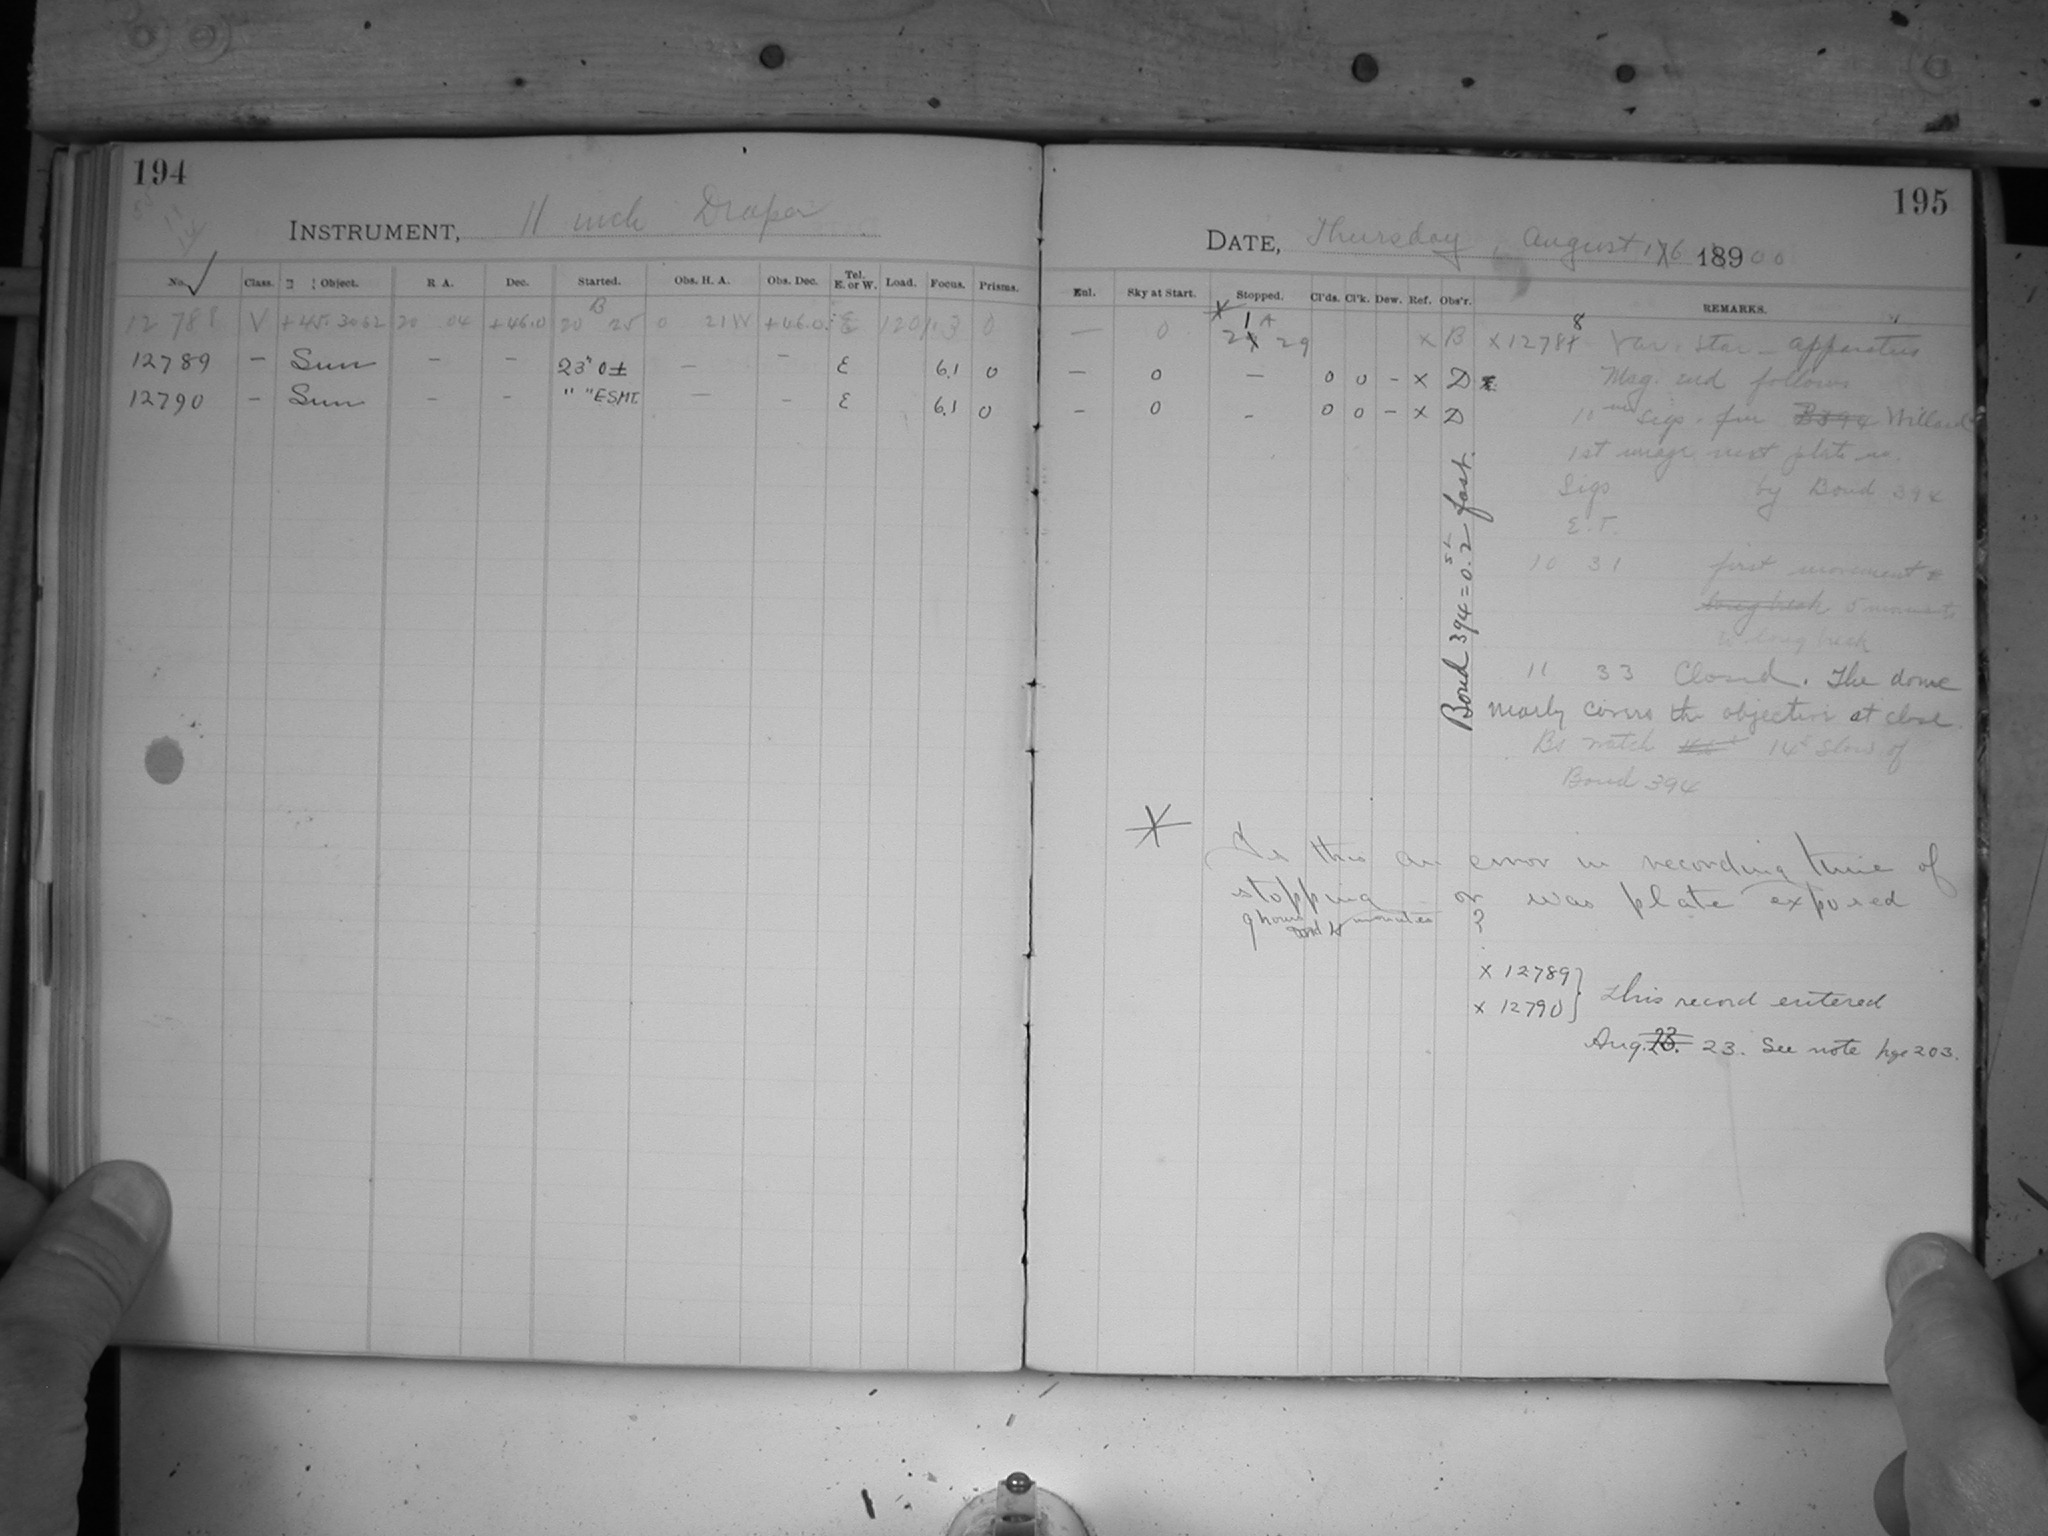 194
INSTRUMENT, 11 inch Draper
No. Class. Object. R A. Dec. Started. Obs. H. A. Obs. Dec. Tel. E. or W. Load. Focus. Prisms.
12788 V +45.3062 20 04 +46.0 20 B 25 0 21W +46.0 E 120 0
12789 — Sun — — 23h 0± — — E 6.1 0
12790 — Sun — — " " E.S.M.T. — — E 6.1 0
195
DATE, Thursday, August 16 1900
Enl. Sky at Start. Stopped. Cl'ds. Cl'k. Dew. Ref. Obs'r. REMARKS.
— 0 * 21 A 29 x B x 12788 Var. Star - apparatus
— 0 — 0 0 - x D Mag. and follows
— 0 - 0 0 - x D 10m sigs. from B394 Willard
1st image next plate no.
Sigs by Bond 394
E.T.
10 31 first movement
long break 5 movements
long break
11 33 Closed. The dome
nearly covers the objective at close.
Bs watch 14s slow of
Bond 394
Bond 394 = 0.2 fast.
* Is this an error in recording time of
stopping or was plate exposed
9 hours and 4 minutes ?
x 12789 }
x 12790 } This record entered
Aug. 23. See note pge 203.